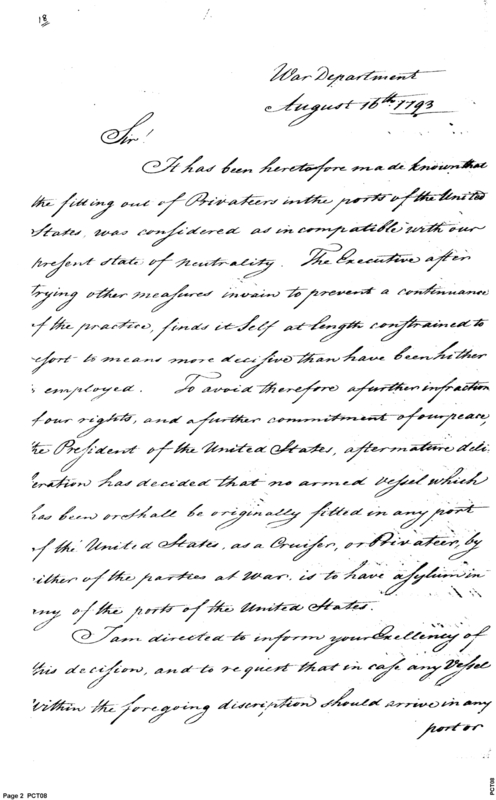 18
War Department
August 16th 1793
Sir!
It has been heretofore made known that
the fitting out of Privateers in the ports of the United
States, was considered as incompatible with our
present state of neutrality. The Executive after
trying other measures in vain to prevent a continuance
of the practice, finds it Self at length constrained to
esort to means more decisive than have been hither
employed. To avoid therefore a further infraction
f our rights, and a further commitment of our peace,
the President of the United States, after mature deli
eration has decided that no armed vessel which
has been or shall be originally fitted in any port
of the United States, as a Cruiser, or Privateer, by
either of the parties at War, is to have asylum in
any of the ports of the United States.
I am directed to inform your Exellency of
this decision, and to request that in case any Vessel
within the foregoing discription should arrive in any
port or
Page 2 PCT08
PCT08